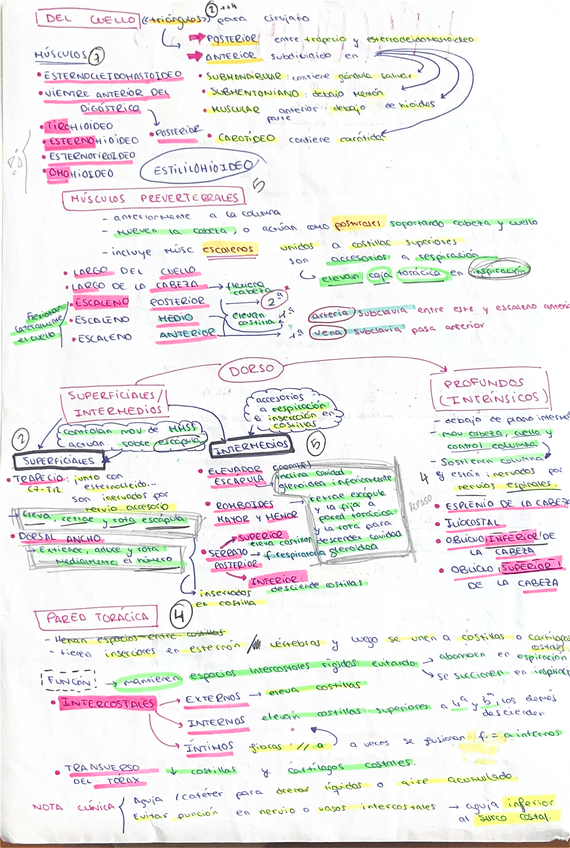 DEL CUELLO (triángulos) para cirujato
POSTERIOR entre trapecio y esternocleidomastoideo
ANTERIOR subdividido en
MÚSCULOS 7
• ESTERNOCLEIDOMASTOIDEO
• SUBMANDIBULAR: contiene glándula salivar
• VIENTRE ANTERIOR DEL
DIGÁSTRICO
• SUBMENTONIANO: debajo mentón
• MUSCULAR anterior: debajo de hioides
parte
• TIROHIOIDEO
• POSTERIOR
• CAROTÍDEO contiene carótida
• ESTERNOHIOIDEO
• ESTERNOTIROIDEO
• OMOHIOIDEO
ESTILILOHIOIDEO
MÚSCULOS PREVERTEBRALES 5
- anteriormente a la columna
- mueven la cabeza, o actúan como posturales soportando cabeza y cuello
- incluye músc escalenos unidos a costillas superiores
son accesorios a respiración
elevan caja torácica en inspiración
• LARGO DEL CUELLO
• LARGO DE LA CABEZA → flexiona
cabeza
• ESCALENO POSTERIOR 2ª
Flexionan
lateralmente
el cuello
• ESCALENO MEDIO elevan
costilla 1ª
arteria subclavia entre este y escaleno anteri
• ESCALENO ANTERIOR 1ª vena subclavia pasa anterior
DORSO
SUPERFICIALES/
INTERMEDIOS
accesorios
a respiración
e inserción en
costillas
PROFUNDOS
(INTRÍNSECOS)
controlan mov de MMSS
actúan sobre escápula
2
SUPERFICIALES
INTERMEDIOS 5
• TRAPECIO: junto con
C7-T12 esternocleido...
son inervados por
nervio accesorio
Eleva, retrae y rota escápula
• DORSAL ANCHO
Extiende, aduce y rota
medialmente el húmero
insertados
en costilla
• ELEVADOR
ESCÁPULA
inclina cavidad
glenoidea inferiormente
• ROMBOIDES
MAYOR Y MENOR
retrae escápula
y la fija a
pared torácica
la rota para
descender cavidad
glenoidea
• SERRATO
POSTERIOR
SUPERIOR
eleva costillas
f. respiratoria
INFERIOR:
desciende costillas
- debajo de plano interme
- mov cabeza, cuello y
control columna
- Sostienen columna
4 y están inervados por
nervios espinales.
• ESPLENIO DE LA CABEZA
• ILIOCOSTAL
• OBLICUO INFERIOR DE
LA CABEZA
• OBLICUO SUPERIOR
DE LA CABEZA
PARED TORÁCICA 4
- llenan espacios entre costillas
- tienen inserciones en esternón vértebras y luego se unen a costillas o cartílagos
costales.
FUNCIÓN → mantienen espacios intercostales rígidos evitando
abomben en espiración
se succionen en inspirac
• INTERCOSTALES
EXTERNOS → eleva costillas
INTERNOS elevan costillas superiores a 4ª y 5ª, los demás
descienden
ÍNTIMOS fibras // a a veces se fusionan f. = a internos
• TRANSVERSO
DEL TÓRAX
↓ costillas y cartílagos costales.
NOTA CLÍNICA
Aguja / catéter para drenar líquidos o aire acumulado.
Evitar punción en nervio o vasos intercostales → aguja inferior
al surco costal.